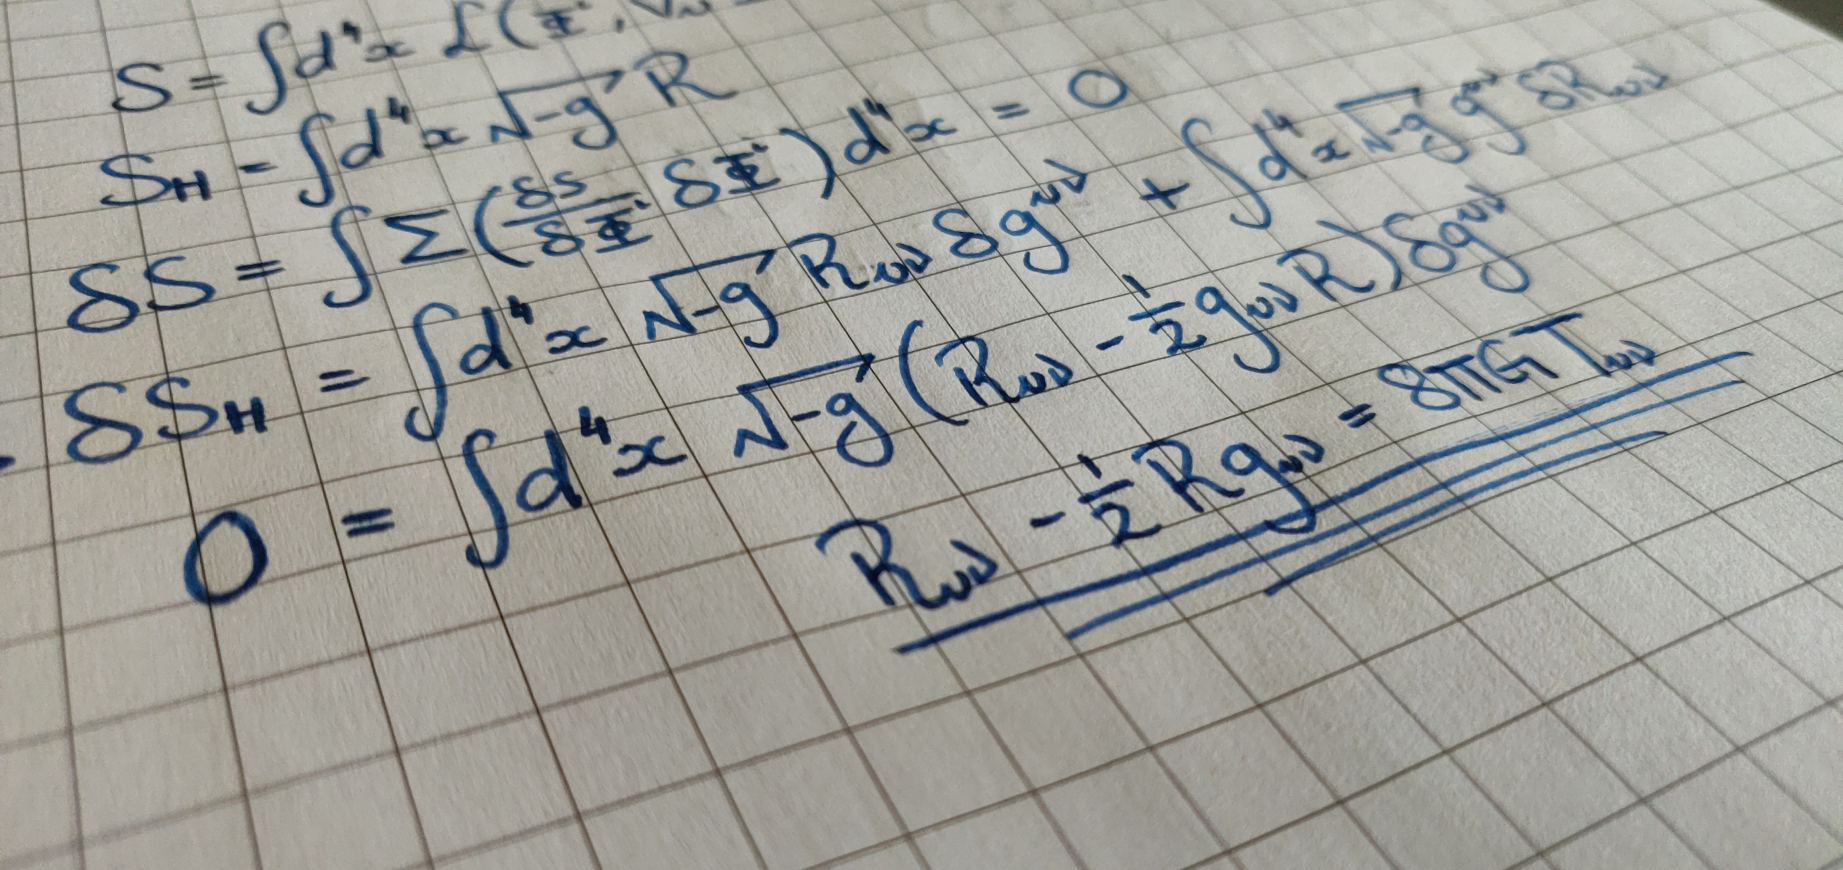 S = ∫d⁴x ℒ(Φⁱ, ∇μ
S_H = ∫d⁴x √-g R
δS = ∫ Σ (δS/δΦⁱ δΦⁱ) d⁴x = 0
δS_H = ∫d⁴x √-g R_μν δg^μν + ∫d⁴x √-g g^μν δR_μν
0 = ∫d⁴x √-g (R_μν - 1/2 g_μν R) δg^μν
R_μν - 1/2 R g_μν = 8πG T_μν